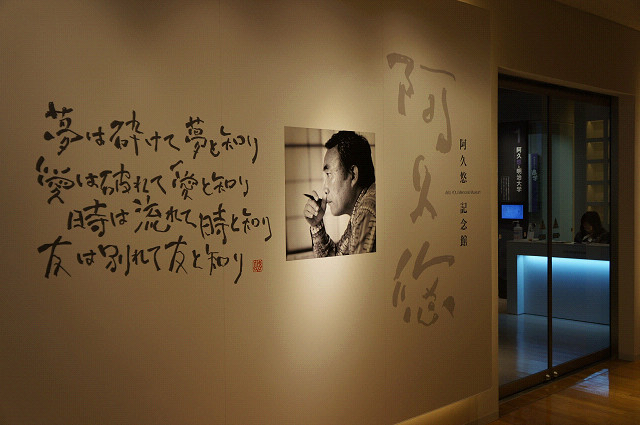 夢は砕けて夢と知り
愛は破れて愛と知り
時は流れて時と知り
友は別れて友と知り
阿久悠
阿久悠 記念館